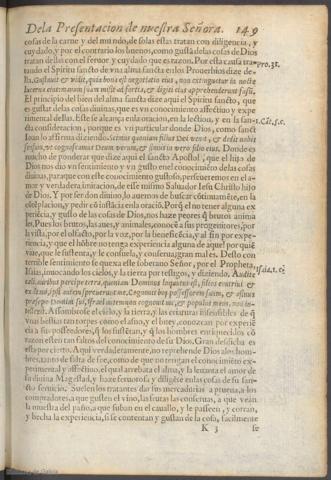 De la Presentacion de nuestra Señora. 149
cosas de la carne y del mundo, de solas estas tratan con diligencia, y
cuydado, y por el contrario los buenos, como gusta de las cosas de Dios
tratan dellas con el feruor y cuydado que es razon. Por esta causa tra-
tando el Spiritu sancto de vna alma sancta en los Prouerbios dize de-
lla, Gustauit & vidit, quia bona est negotiatio eius, non extinguetur in nocte
lucerna eius manum suam misit ad fortia, & digiti eius apprehenderunt fusū.
El principio del bien del alma sancta dize aqui el Spiritu sancto, que
es gustar de las cosas diuinas, que es vn conocimiento affectiuo y expe
rimental dellas. Este se alcança en la oracion, en la lection, y en la san-
cta consideracion, porque es vn particular don de Dios, como sanct
Ioan lo affirma diziendo. Scimus quoniam filius Dei venit, & dedit nobis
sensum, vt cognoscamus Deum verum, & simus in vero filio eius. Donde es
mucho de ponderar que dize aqui el sancto Apostol, que el hijo de
Dios nos dio vn sentimiento y vn gusto en el conocimiēto de las cosas
diuinas, para que con este conocimiento gustoso, perseueremos en el a-
mor y verdadera imitacion, de este mismo Saluador Iesu Christo hijo
de Dios. Y por ser don diuino, lo auemos de buscar cōtinuamēte, en la
cōtēplacion, y pedir cō instācia en la oraciō. Porq̄ el no tener alguna ex
periēcia, y gusto de las cosas de Dios, nos haze peores q̄ brutos anima
les. Pues los brutos, las aues, y animales, conocē a sus progenitores, por
la vista, por el olfacto, por la voz, por la beneficēcia, y al fin por expe-
riencia, y que el hōbre no tenga experiencia alguna de aquel por quiē
viue, que le sustenta, y le consuela, y consuena, gran mal es. Desto con
terrible sentimiento se quexa este soberano Señor, por el Propheta,
Isaias, inuocando los cielos, y la tierra por testigos, y diziendo, Audite
cæli, auribus percipe terra, quoniam Dominus loquutus est, filios enutriui &
exaltaui, ipsi autem spreuerunt me. Cognouit bos possessorem suum, & asinus
præsepe Domini sui, Israel autem non cognouit me, & populus meus, non in-
tellexit. Assombrese el cielo, y la tierra, y las criaturas insensibles de q̄
vnas bestias tan torpes como el asno, y el buey, conozcan por experiē
cia a sus possedores, q̄ los sustētan, y q̄ los hombres enriquecidos cō
razon estē tan faltos del conocimiento de su Dios. Gran desdicha es
esta por cierto. Aqui verdaderamente, no reprehende Dios a los hom-
bres, tanto de falta de fee, como de que no tengan el conocimiēto expe
rimental y affectiuo, el qual arrebata el alma, y la leuanta el amor de
su diuina Magestad, y haze feruorosa, y diligēte en las cosas de su san-
cto seruicio. Suelen los tratantes dar sus mercadurias a prueua, a los
compradores, a que gusten el vino, las frutas, las conseruas, a que vean
la muestra del paño, a que suban en el cauallo, y le passeen, y corran,
y hecha la experiencia, si se contentan y gustan de la cosa, facilmente
K 3 se
Pro. 31.
1. Cāt. 5. c.
Isai. 1. c.